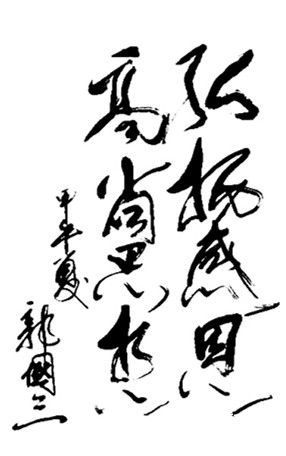 弘扬感恩
高尚思想
甲午夏
龍國三